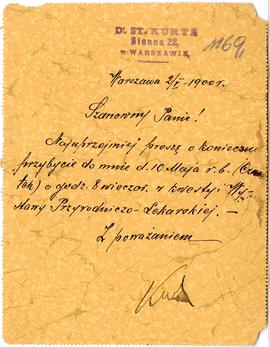 Dr. ST. KURTZ
Sienna 22,
w WARSZAWIE.
1169
Warszawa 2/V 1900 r.
Szanowny Panie!
Najuprzejmiej proszę o konieczne
przybycie do mnie d. 10 Maja r. b. (Czwar
tek) o godz. 8 wieczor. w kwestyi Wy-
stawy Przyrodniczo-Lekarskiej. —
Z poważaniem